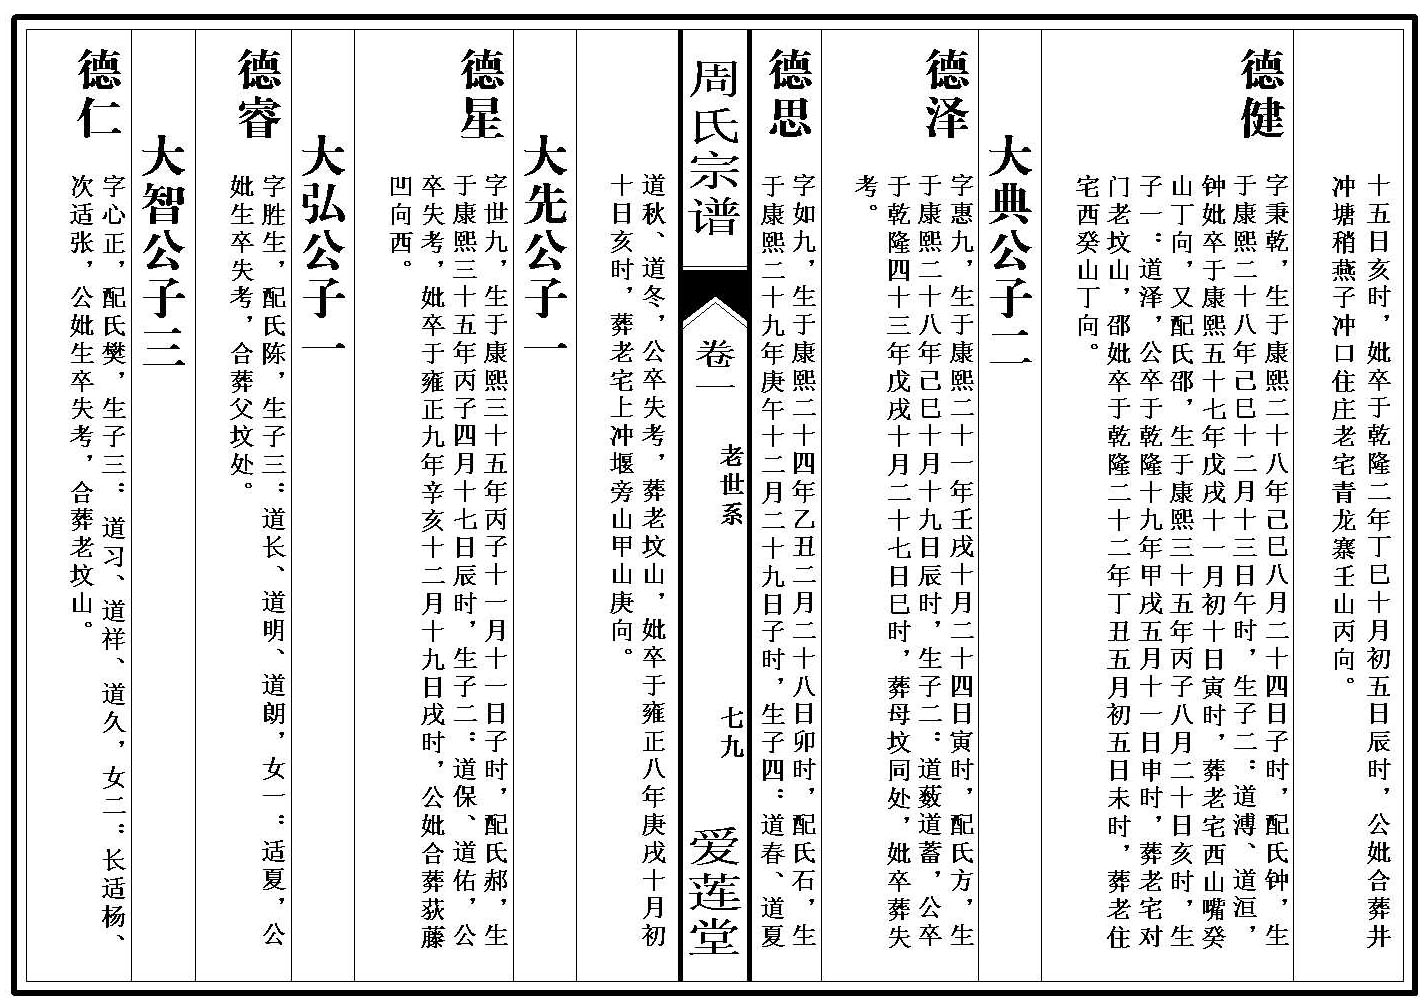 十五日亥时，妣卒于乾隆二年丁巳十月初五日辰时，公妣合葬井
冲塘稍燕子冲口住庄老宅青龙寨壬山丙向。
德健
字秉乾，生于康熙二十八年己巳八月二十四日子时，配氏钟，生
于康熙二十八年己巳十二月十三日午时，生子二：道溥、道洹，
钟妣卒于康熙五十七年戊戌十一月初十日寅时，葬老宅西山嘴癸
山丁向，又配氏邵，生于康熙三十五年丙子八月二十日亥时，生
子一：道泽，公卒于乾隆十九年甲戌五月十一日申时，葬老宅对
门老坟山，邵妣卒于乾隆二十二年丁丑五月初五日未时，葬老住
宅西癸山丁向。
大典公子二
德泽
字惠九，生于康熙二十一年壬戌十月二十四日寅时，配氏方，生
于康熙二十八年己巳十月十九日辰时，生子二：道薮道蓄，公卒
于乾隆四十三年戊戌十月二十七日巳时，葬母坟同处，妣卒葬失
考。
德思
字如九，生于康熙二十四年乙丑二月二十八日卯时，配氏石，生
于康熙二十九年庚午十二月二十九日子时，生子四：道春、道夏
周氏宗谱
卷一
老世系
七九
爱莲堂
道秋、道冬，公卒失考，葬老坟山，妣卒于雍正八年庚戌十月初
十日亥时，葬老宅上冲堰旁山甲山庚向。
大先公子一
德星
字世九，生于康熙三十五年丙子十一月十一日子时，配氏郝，生
于康熙三十五年丙子四月十七日辰时，生子二：道保、道佑，公
卒失考，妣卒于雍正九年辛亥十二月十九日戌时，公妣合葬荻藤
凹向西。
大弘公子一
德睿
字胜生，配氏陈，生子三：道长、道明、道朗，女一：适夏，公
妣生卒失考，合葬父坟处。
大智公子三
德仁
字心正，配氏樊，生子三：道习、道祥、道久，女二：长适杨、
次适张，公妣生卒失考，合葬老坟山。